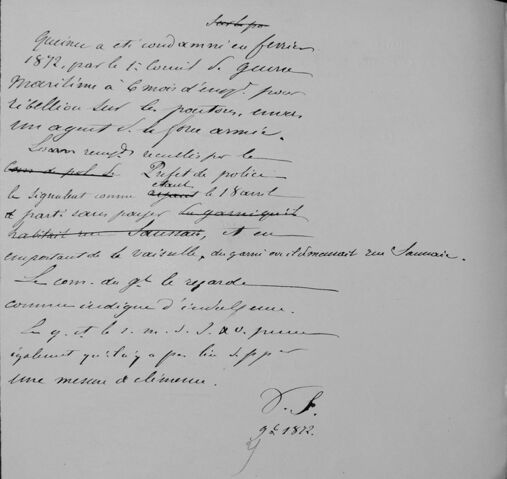 ~~Sur le po~~
a été condamné en février
1872, par le 1er Conseil de guerre
maritime à 6 mois d'empt. pour
rébellion sur les pontons, envers
un agent de la force armée.
Les rensgts recueillis par le
~~Com de pol le~~ Préfet de police
étant
le signalent comme le 18 avril
parti sans payer ~~le garni qu'il~~
~~habitait rue Saussaie~~, et en
emportant de la vaisselle, du garni où il demeurait rue Saussaie.
Le com. du gt le regarde
comme indigne d'indulgence.
Le g. et le
également qu'il n'y a pas lieu
une mesure de clémence.
1872.